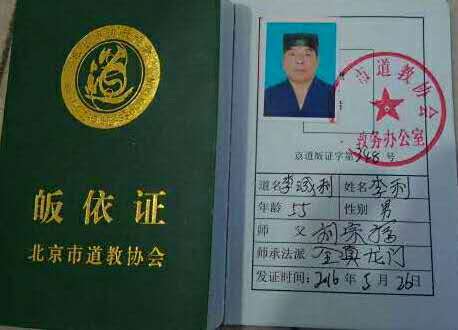 道
皈依证
北京市道教协会
市道教协会
教务办公室
京道皈证字第348号
道名 李诚利 姓名 李利
年龄 55 性别 男
师 父
师承法派 全真龙门
发证时间:2016年5月26日